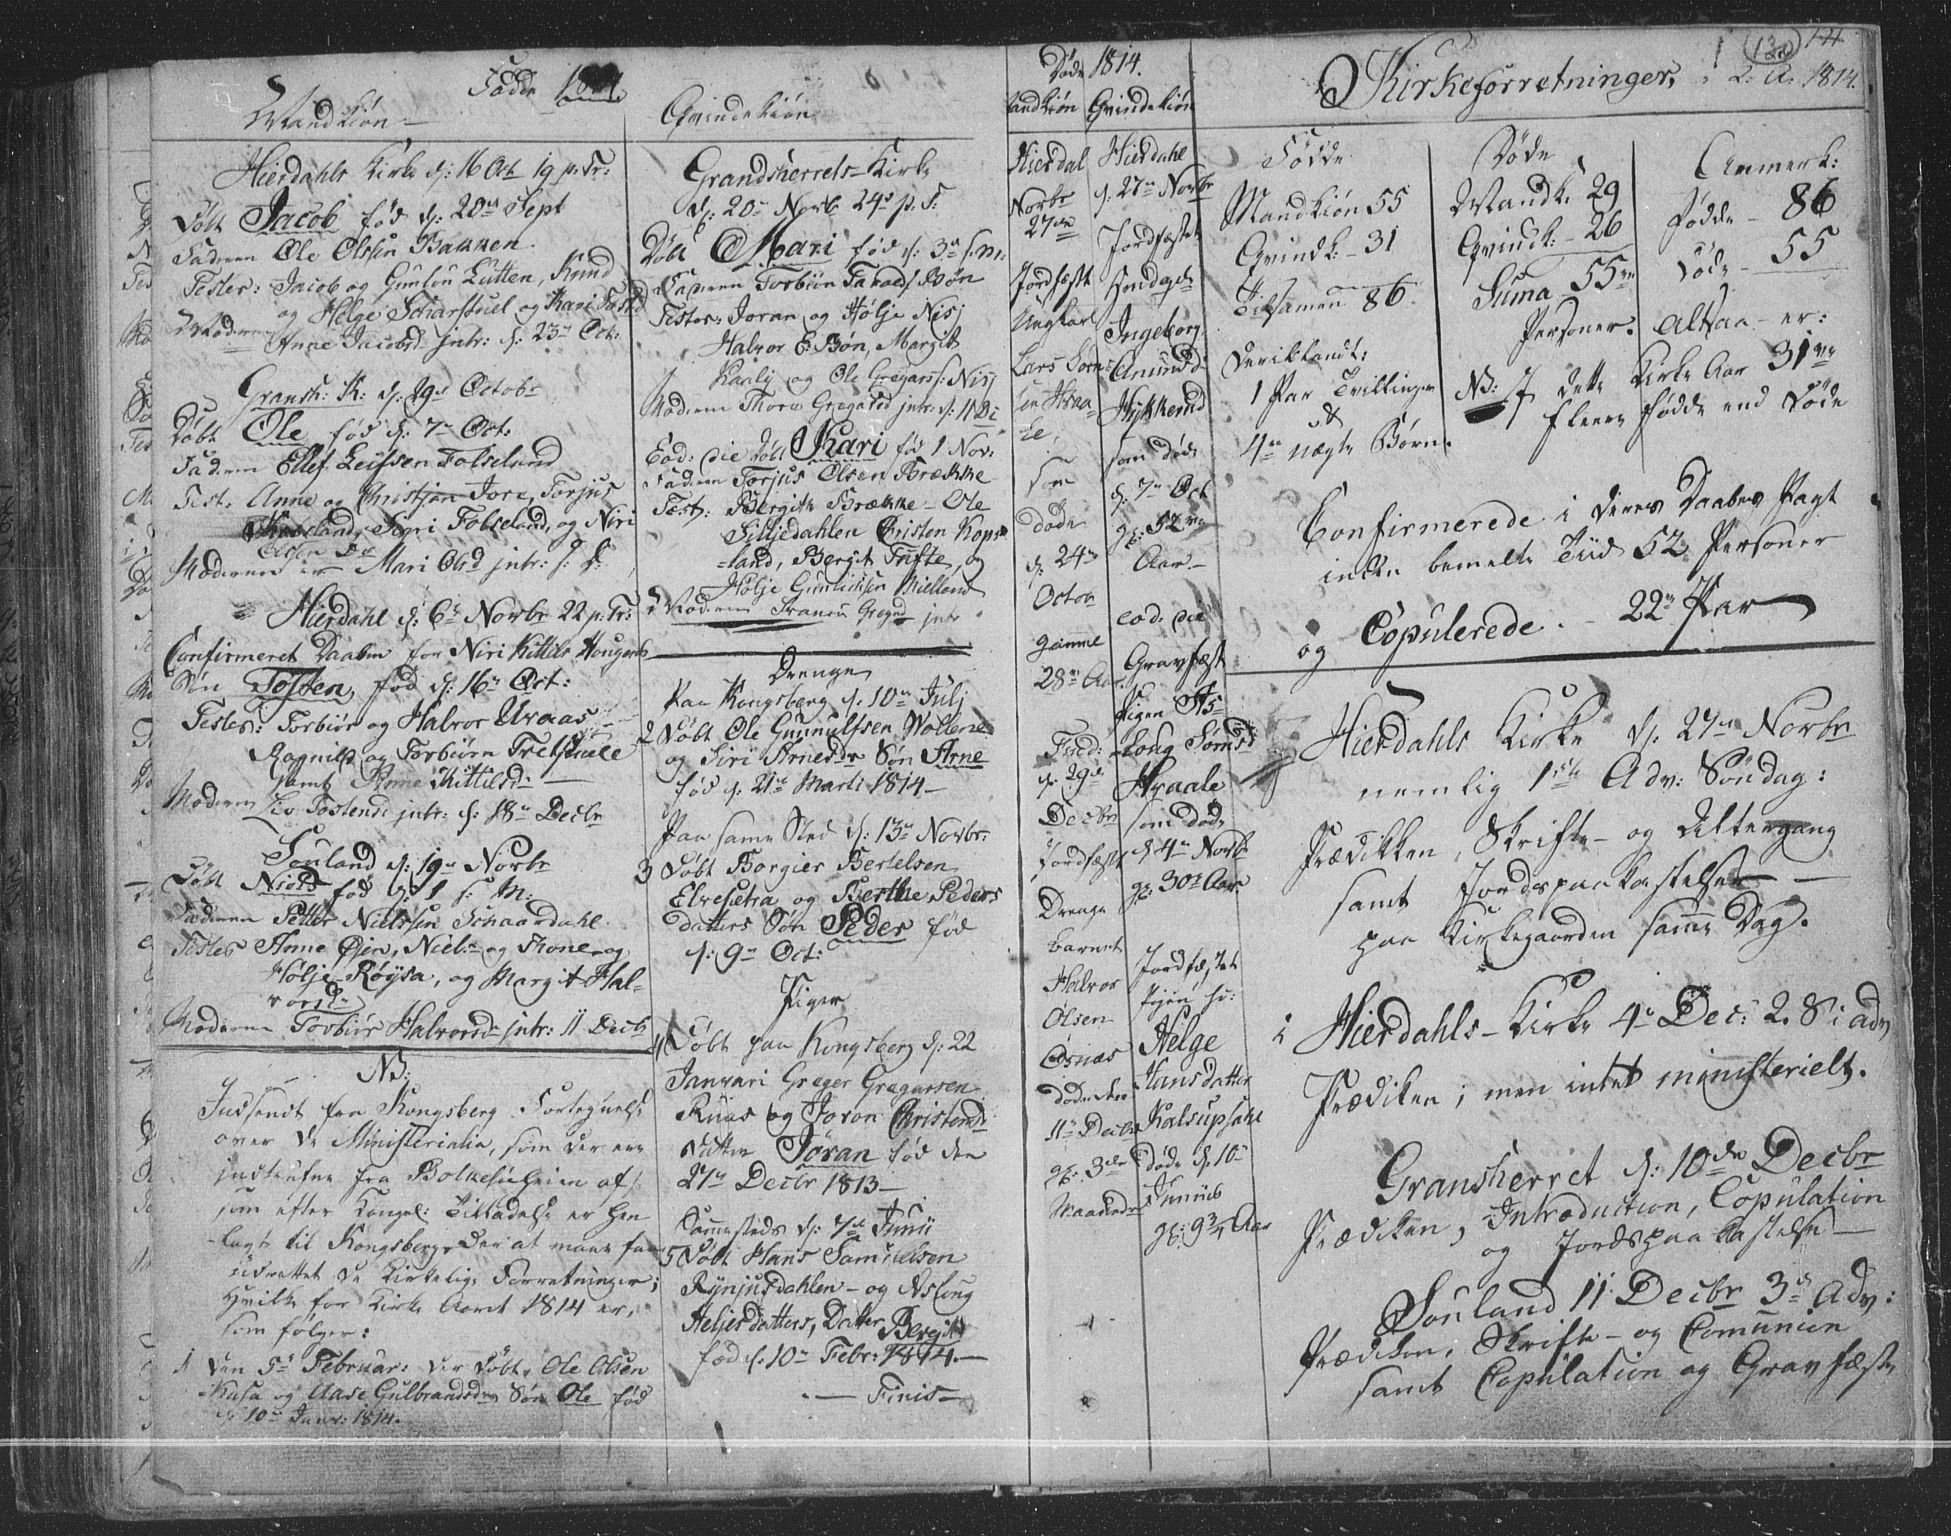 Fødde 1814
Mandkiøn
Hierdahls Kirke d: 16 Oct 19 p. Tr:
Døbt Jacob fød d: 20de Sept
Faderen Ole Olssen Bakken
Testes: Jacob og Gunlou Lutten, Knud
og Helge Scharpnuel og Kari
Moderen Anne Jacobsd intr: d: 23de Oct:
Gransh: K: d: 29de Octobr
Døbt Ole fød d: 7de Oct:
Faderen Ellef Leifsen Folseland
Test. Anne og Christjan Jore, Torjus
Sigri Folseland, og Niri
Olsen
Moderen er Mari Olsd intr:
Hierdahl d: 6te Novbr 22 p: Tr:
Confirmeret Daaben for Niri Kittils Haugens
Søn Tosten, fød d: 16de Oct:
Testes: Torbiør og Halvor Uraas
Ragnild og Torbiørn Tretspuele
samt Anne Kittilsd:
Moderen Liv Tostensd intr: d: 18de Decbr
Souland d: 19de Novbr
Døbt Niels fød d: 1 s: M:
Faderen Petter Nielssen Schaardahl
Testes Anne Øjen, Niels og Thone og
Hølje Røysa, og Margit Hal-
vorsd
Moderen Torbiør Halvorsd intr: 11 Decb
NB:
Indsendt fra Kongsberg Fortegnelse
over de Ministerialia, som der ere
indtrufne fra Bolkesiøheien af,
som efter Kongel: Tilladelse er hen
lagt til Kongsberg, der at maae faa
udrettet de Kirkelige Forretninger;
hvilke for Kirke Aaret 1814 er,
som følger:
1 Den 5te Februar: der Døbt, Ole Olsen
Kusa og Aase Gulbrandsdrs Søn Ole fød
d 10de Janr: 1814.
Qvindekiøn
Grandsherrets-Kirke
d: 20de Novb 24de p. T:
Døbt Mari fød d: 3de s: M:
Faderen Torbiøn Taraldsen Bøn
Testes: Joran og Hølje Nisj
Halvor E: Bøn, Margit
Haalij og Ole Gregarss: Nisj
Moderen Thore Gregarsd intr: d: 11 De
Eod: die Døbt Kari fød 1 Nov:
Faderen Torjus Olsen Brække
Test: Bergith Brække - Ole
Silljedahlen Christen Kops
-land, Bergit Tufte, og
Hølje Gunlichsen Mielland
Moderen
Drenge
Paa Kongsberg d. 10de Julj
2 Døbt Ole Gunnulfsen Wollene
og Siri Arnesdr Søn Arne
fød d. 21de Marti 1814 -
Paa same Sted d: 13de Novbr:
3 Døbt Borgier Bertelsen
Elvesetra og Berthe Peders
datters Søn Peder fød
d: 9de Oct:
Piger
4 Døbt paa Kongsberg d: 22
Januari Greger Gregarsen
Ruus og Joron Christens
datter Joran fød den
27de Decbr 1813 -
Sammesteds d: 7de Junii
5 Døbt Hans Samuelsen
Rynjusdahlen - og Asloug
Heljesdatters, Datter Bergit
fød d: 10de Febr: 1814. -
- Finis -
Døde 1814.
Mandkiøn
Hierdal
Novbr
27de
Jordfæste
Ungkar
Lars Sørn-
sen Hraa-
le,
som
døde
d: 24de
Octob
gamel
28de Aar.
Fred:
d: 29de
Decbr
Jordfæste
Drenge
barnet
Halvor
Olsen
Øsnæs
døde den
11de Decbr
gl: 3de
Maaneder
Qvindekiøn
Hierdahl
d. 27de Novbr
Jordfæstet
Ingeborg
Amunds
Hykkerud
som døde
d. 7de Oct
gl: 52de
Aar -
eod: die
Gravfæst
Pigen As-
-loug Sørns
Hraale
som døde
d 4de Novb
gl: 30de Aar
Jordfæstet
Pigen
Helge
Hansdatter
døde d. 10de
Junii
gl: 9 3/4 Aar
132 14
Kirkeforretninger, K. A. 1814.
Fødde
Mandkiøn 55
Qvindk: - 31
Tilsamen 86.
Deriblandt:
1 Par Tvillinger
&
4re uægte Børn.
Døde
Mandk. 29
Qvindk: - 26
Suma 55
Personer.
Anmerk:
Fødde - 86
Døde - 55
Altsaa er:
NB: I dette Kirke Aar 31
fleere fødde end Døde
Confirmerede i deres Daabes Pagt
inden bemelte Tiid 52 Personer
og Copulerede - 22 Par
Hierdahls Kirke d. 27de Novbr
nemlig 1ste Adv: Søndag:
Prædikken, Skrifte- og Altergang
samt Jordspaakastelse
paa Kirkegaarden samme Dag.
i Hierdahls-Kirke 4de Dec: 2. S: i adv
Prædiken, men intet ministerielt.
Gransherret d: 10de Decbr
Prædiken, Introduction, Copulation
og Jordspaakastelse
Souland 11 Decbr 3de Adv:
Prædiken, Skrifte- og Comunion
samt Copulation og Gravfæste